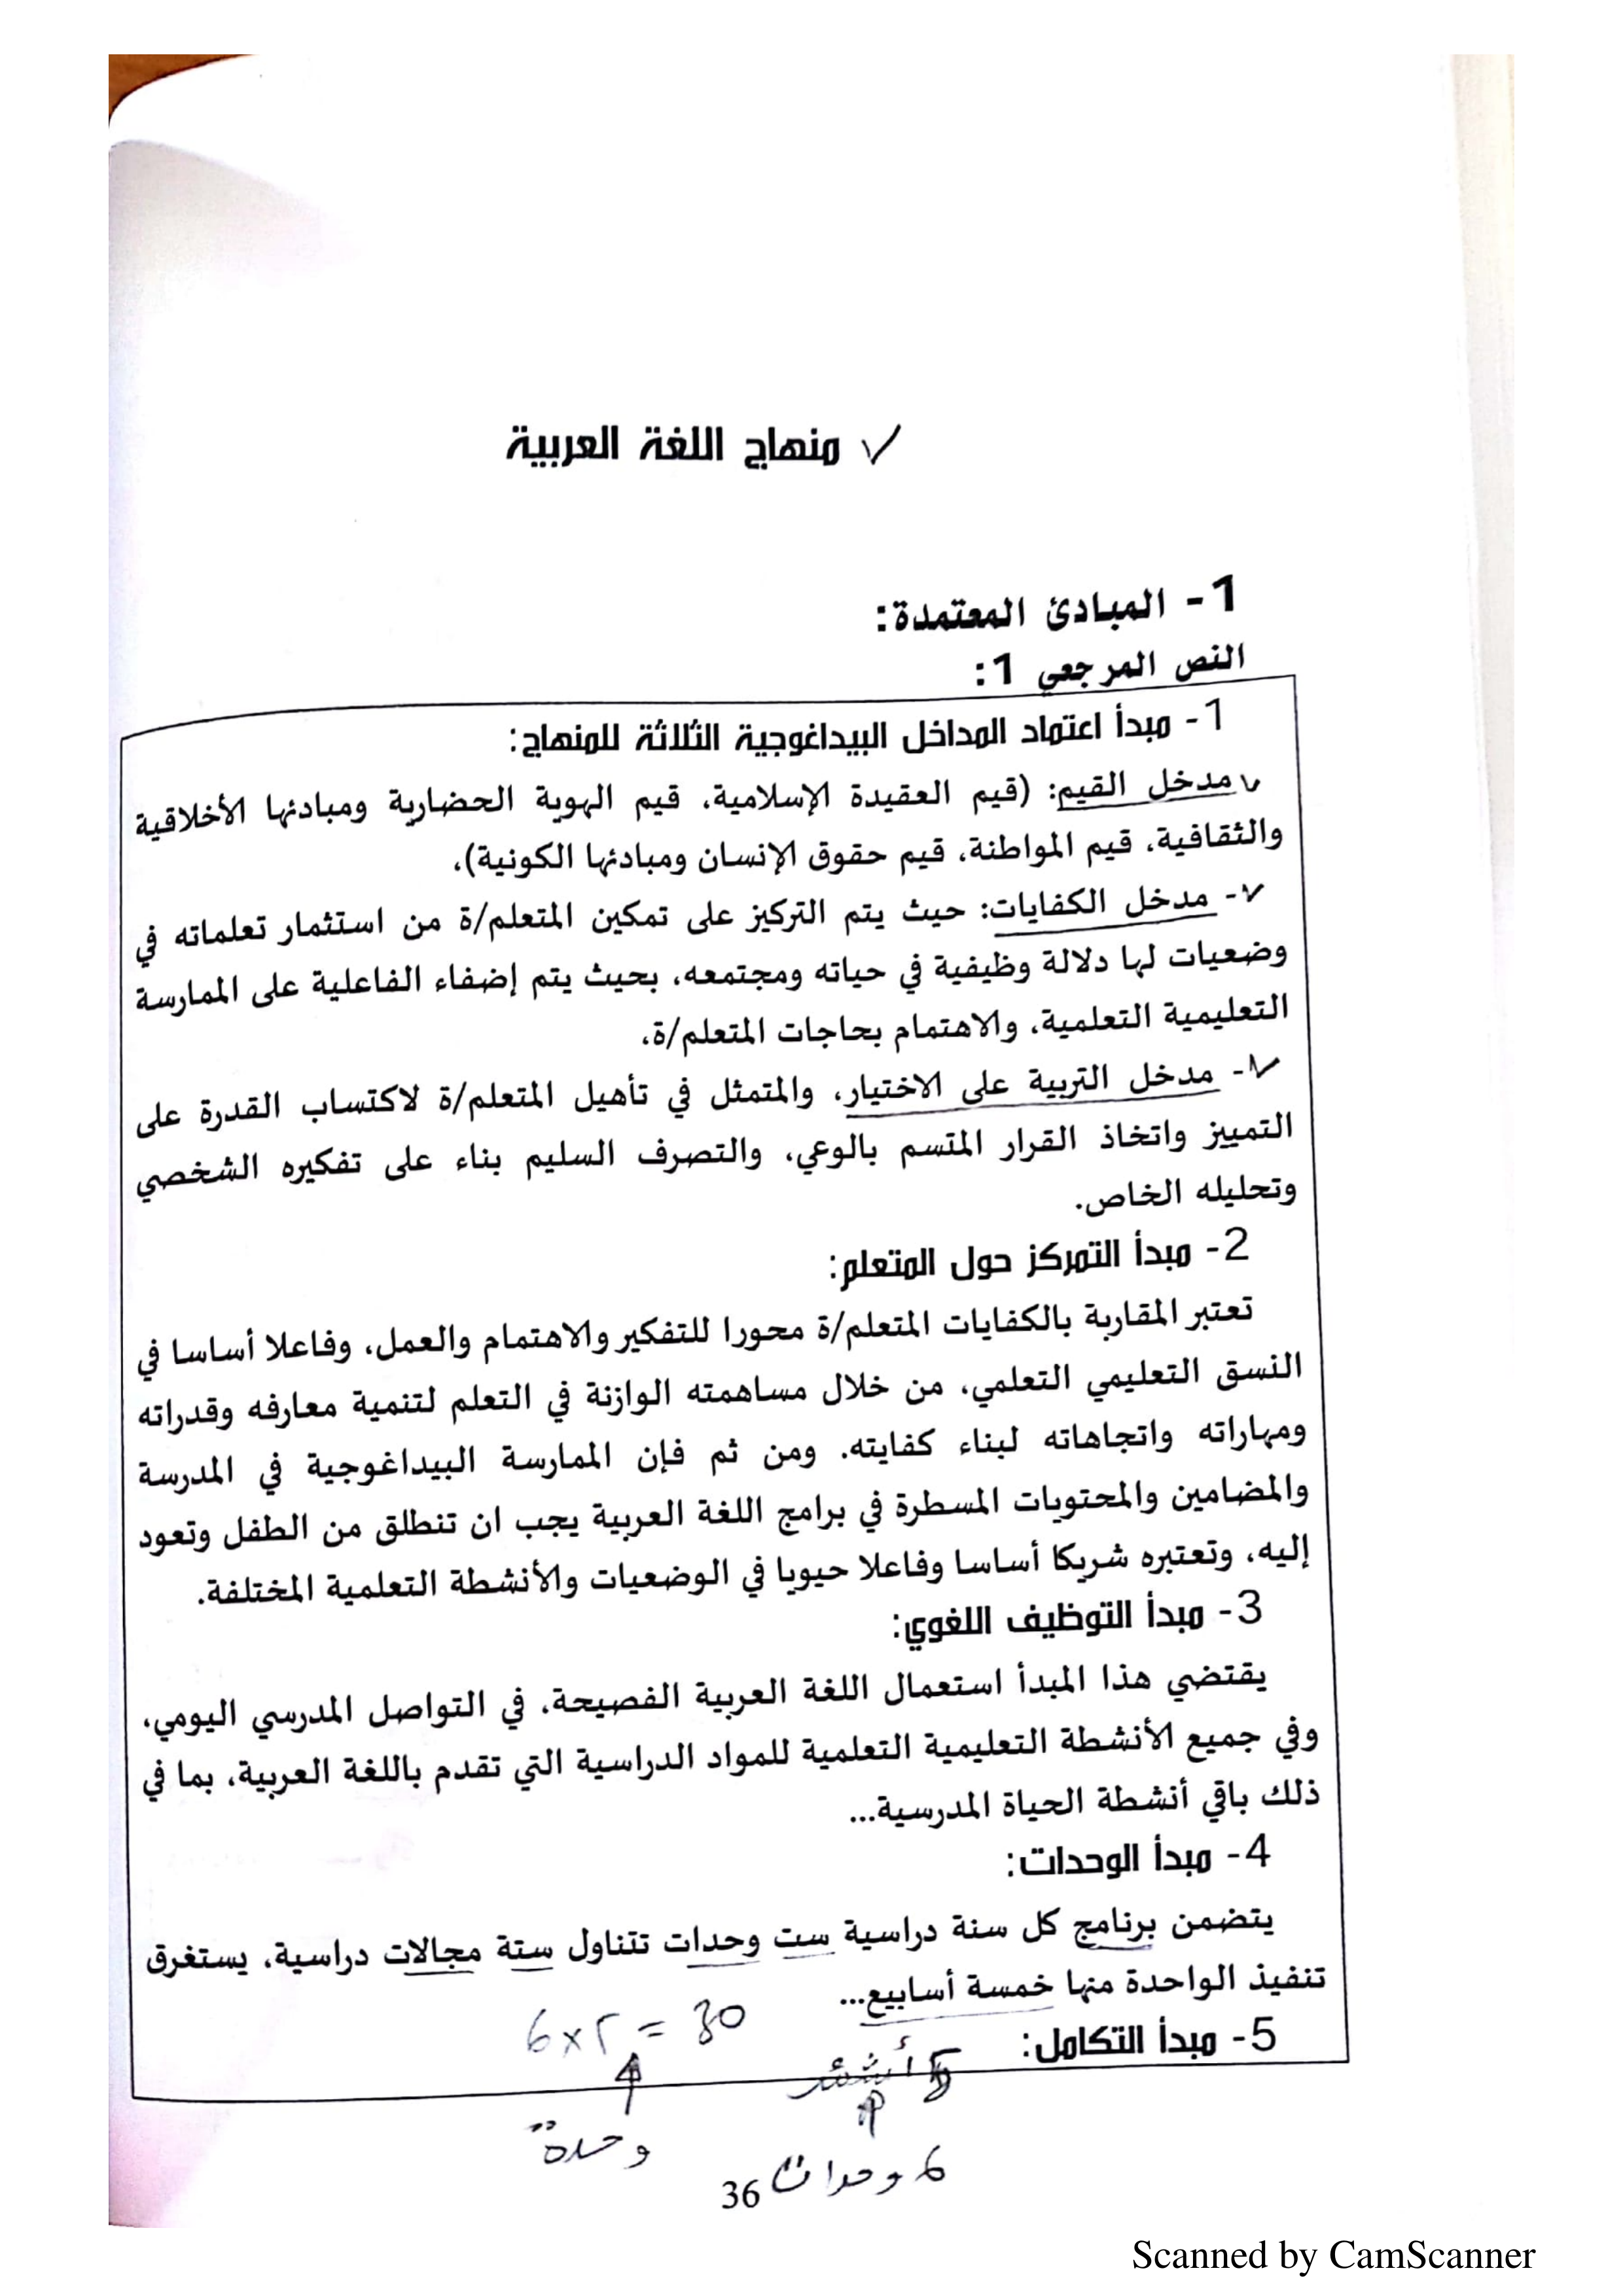 منهاج اللغة العربية
1- المبادئ المعتمدة:
النص المرجعي 1:
1- مبدأ اعتماد المداخل البيداغوجية الثلاثة للمنهاج:
مدخل القيم: (قيم العقيدة الإسلامية، قيم الهوية الحضارية ومبادئها الأخلاقية
والثقافية، قيم المواطنة، قيم حقوق الإنسان ومبادئها الكونية)،
- مدخل الكفايات: حيث يتم التركيز على تمكين المتعلم/ة من استثمار تعلماته في
وضعيات لها دلالة وظيفية في حياته ومجتمعه، بحيث يتم إضفاء الفاعلية على الممارسة
التعليمية التعلمية، والاهتمام بحاجات المتعلم/ة،
- مدخل التربية على الاختيار، والمتمثل في تأهيل المتعلم/ة لاكتساب القدرة على
التمييز واتخاذ القرار المتسم بالوعي، والتصرف السليم بناء على تفكيره الشخصي
وتحليله الخاص.
2- مبدأ التمركز حول المتعلم:
تعتبر المقاربة بالكفايات المتعلم/ة محورا للتفكير والاهتمام والعمل، وفاعلا أساسا في
النسق التعليمي التعلمي، من خلال مساهمته الوازنة في التعلم لتنمية معارفه وقدراته
ومهاراته واتجاهاته لبناء كفايته. ومن ثم فإن الممارسة البيداغوجية في المدرسة
والمضامين والمحتويات المسطرة في برامج اللغة العربية يجب ان تنطلق من الطفل وتعود
إليه، وتعتبره شريكا أساسا وفاعلا حيويا في الوضعيات والأنشطة التعلمية المختلفة.
3- مبدأ التوظيف اللغوي:
يقتضي هذا المبدأ استعمال اللغة العربية الفصيحة، في التواصل المدرسي اليومي،
وفي جميع الأنشطة التعليمية التعلمية للمواد الدراسية التي تقدم باللغة العربية، بما في
ذلك باقي أنشطة الحياة المدرسية...
4- مبدأ الوحدات:
يتضمن برنامج كل سنة دراسية ست وحدات تتناول ستة مجالات دراسية، يستغرق
تنفيذ الواحدة منها خمسة أسابيع...
6 x 5 = 30
5- مبدأ التكامل:
وحدة
6 وحدات
36
Scanned by CamScanner